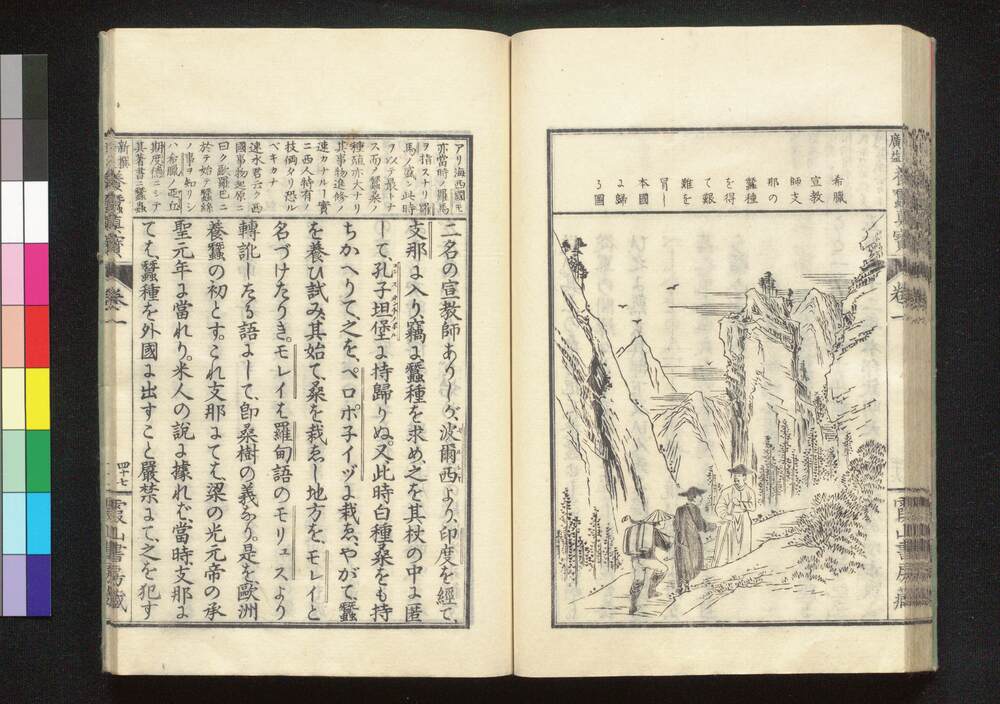 希臘
宣教
師支
那の
蠶種
を得
て艱
難を
冒し
本國
に歸
る圖
卷一
アリ海西國モ
亦當時ノ羅馬
ヲ指スナリ羅
馬ノ盛ン此時
ヲ以テ最トナ
ス而ノ蠶桑ノ
種殖亦大ナリ
其事物進修ノ
速カナルー實
ニ西人特有ノ
技倆タリ恐ル
ベキカナ
速水君云ク西
國事物起原ニ
曰ク歐羅巴ニ
於テ始テ蠶絲
ノ事ヲ知リシ
ハ希臘ノ亞立
期度德ニシテ
其著書ニ蠶蟲
二名の宣教師ありしが、波爾西より、印度を經て、
支那に入り、竊に蠶種を求め、之を其杖の中に匿
して、孔子坦堡に持歸りぬ。又此時白種桑をも持
ちかへりて、之を、ペロポ子イヅに栽ゑ、やがて、蠶
を養ひ試み、其始て桑を栽ゑし地方を、モレイと
名づけたりき。モレイは羅甸語のモリュスより
轉訛したる語にして、卽桑樹の義なり。是を歐洲
養蠶の初とす。これ支那にては、梁の光元帝の承
聖元年に當れり。米人の說に據れば、當時支那に
ては、蠶種を外國に出すこと嚴禁にて、之を犯す
新撰
養蠶眞寶
卷一
四十七
霞山書房藏